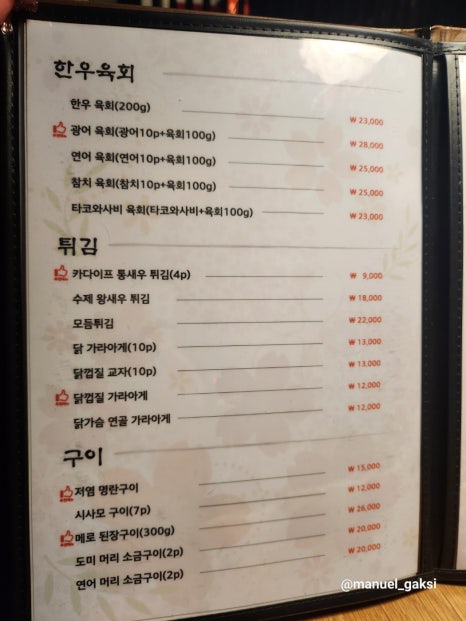 한우육회
한우 육회(200g) ₩ 23,000
광어 육회(광어10p+육회100g) ₩ 28,000
연어 육회(연어10p+육회100g) ₩ 25,000
참치 육회(참치10p+육회100g) ₩ 25,000
타코와사비 육회(타코와사비+육회100g) ₩ 23,000
튀김
카다이프 통새우 튀김(4p) ₩ 9,000
수제 왕새우 튀김 ₩ 18,000
모듬튀김 ₩ 22,000
닭 가라아게(10p) ₩ 13,000
닭껍질 교자(10p) ₩ 13,000
닭껍질 가라아게 ₩ 12,000
닭가슴 연골 가라아게 ₩ 12,000
구이
저염 명란구이 ₩ 15,000
시사모 구이(7p) ₩ 12,000
메로 된장구이(300g) ₩ 26,000
도미 머리 소금구이(2p) ₩ 20,000
연어 머리 소금구이(2p) ₩ 20,000
@manuel_gaksi